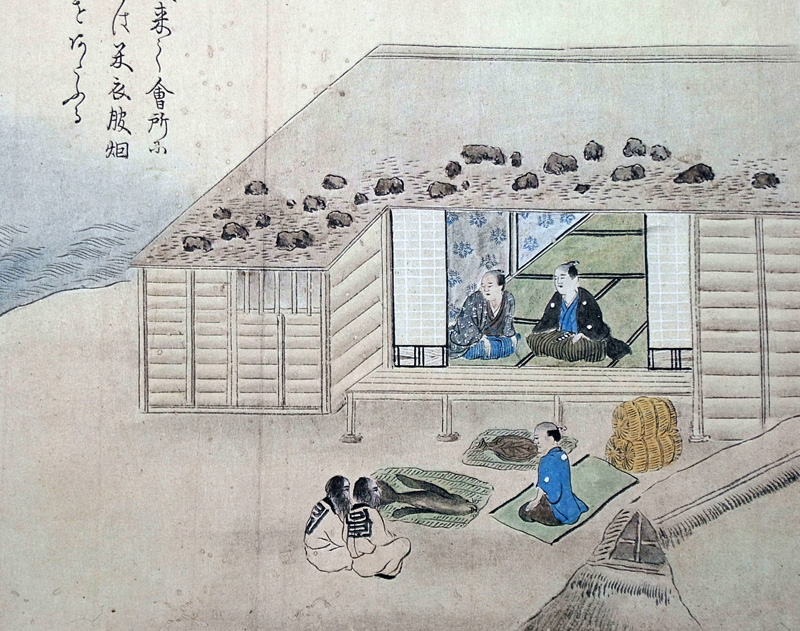 来り會所に
は米衣服烟
をあたふる